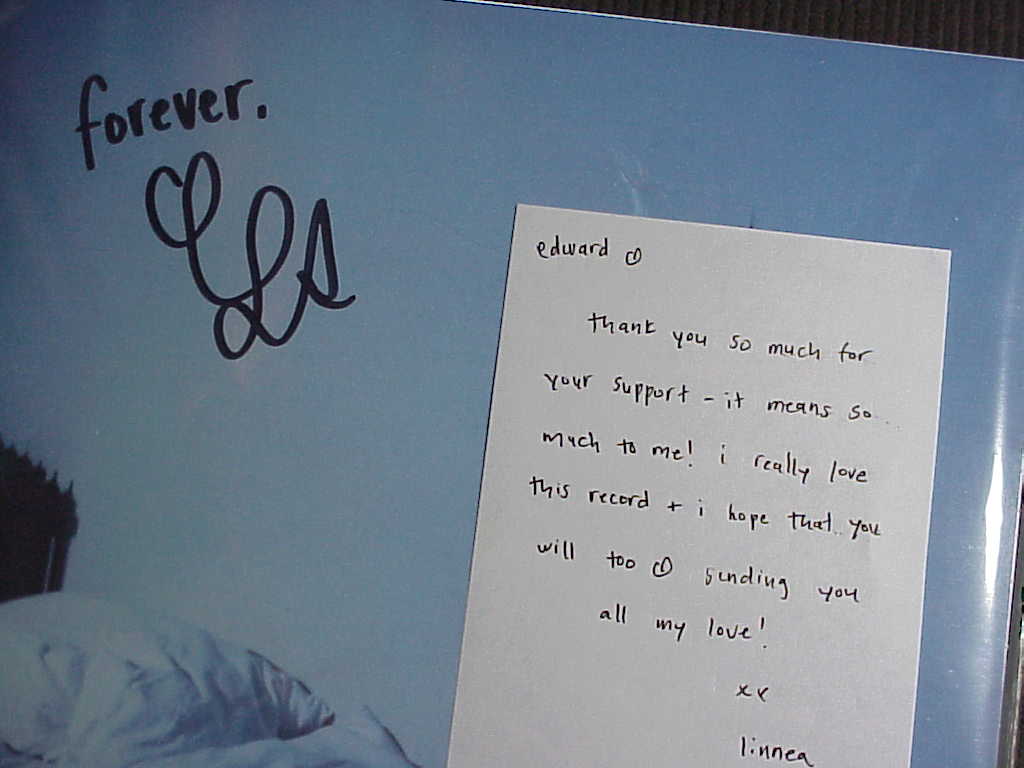 forever.
edward
thank you so much for
your support - it means so
much to me! i really love
this record + i hope that you
will too sending you
all my love!
xx
linnea